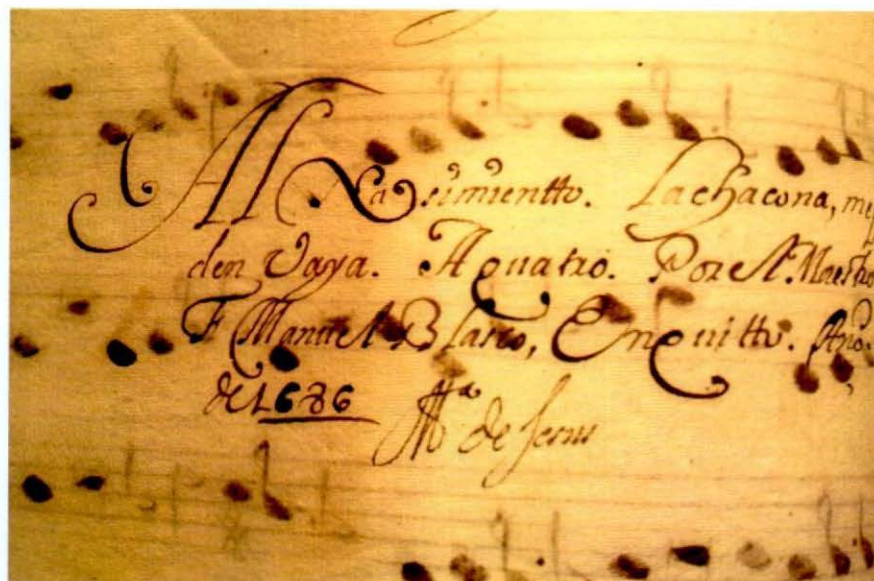 Al Nasimientto. La chacona, me
den Vaya. A quatro. Por el Maestro
F Manuel Blasco, En quitto. Año
de 1686 Mª de Jesus